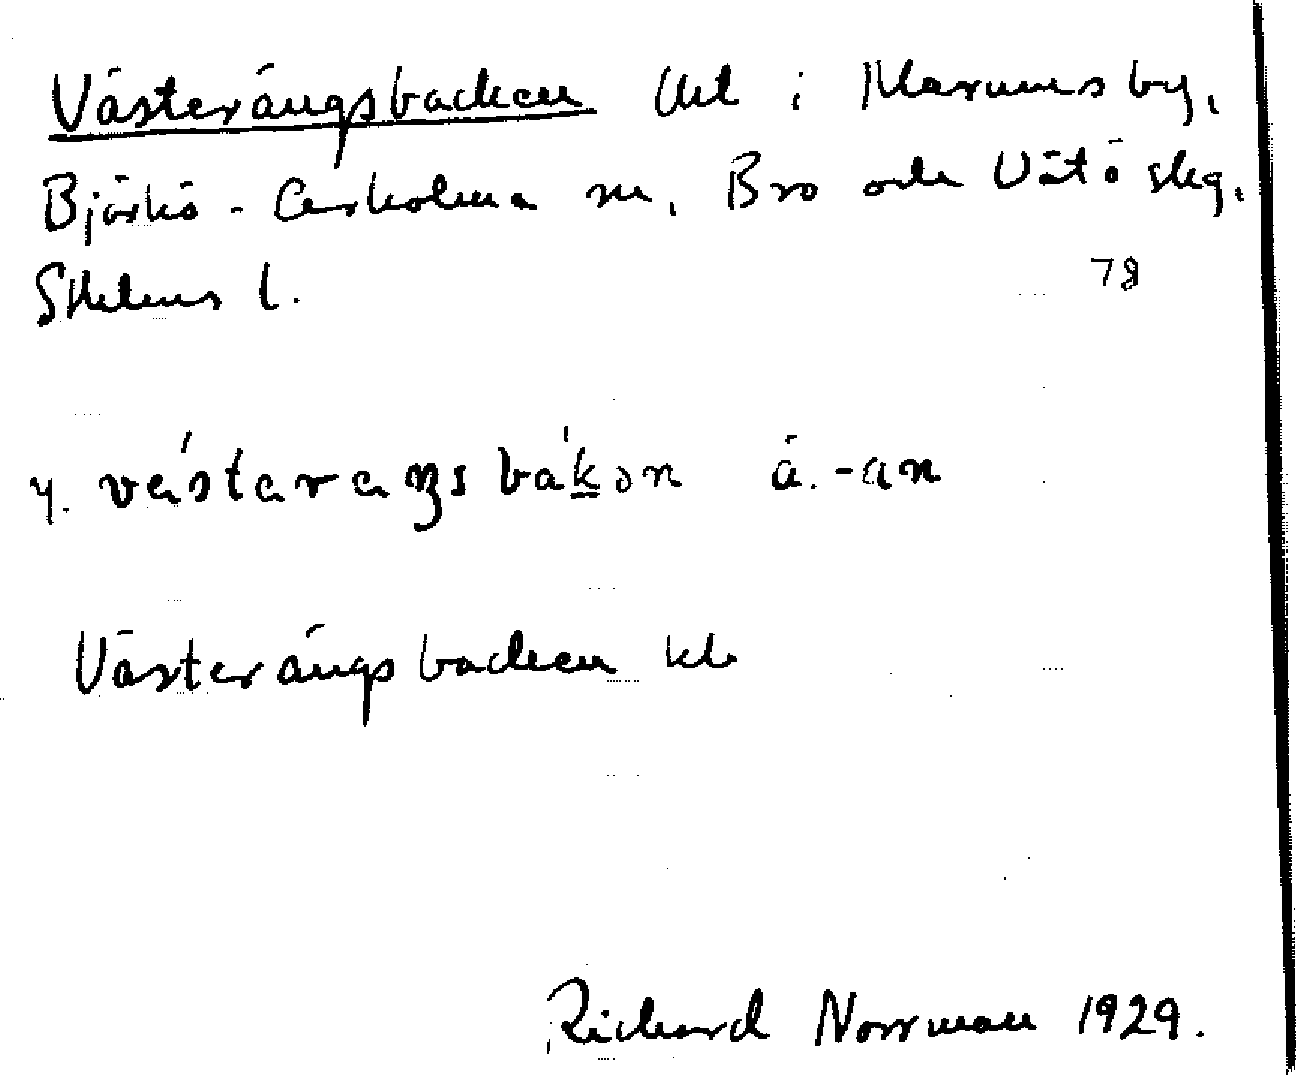 Västerängsbacken Utl i Marumsby,
Björkö-Arholma sn, Bro och Vätö skg.
Sthlms l.
78
y. västaraŋsbakən a. -an
Västerängsbacken kb
Richard Norrman 1929.